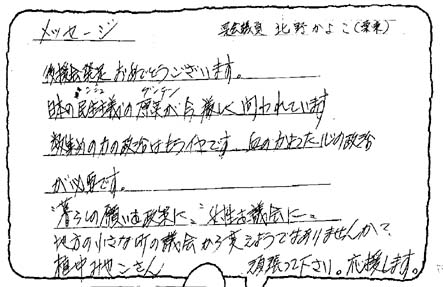 メッセージ 県会議員 北野かよこ(栗東)
後援会発足おめでとうございます。
日本の民主主義の原点が今厳しく問われています
ミンシュ ゲンテン
数集めの力の政治はもうイヤです 血のかよった心の政治
が必要です。
"暮らしの願いを政策に、""女性を議会に"
地方の小さな町の議会から変えようではありませんか、
植中みやこさん 頑張って下さい。応援します。